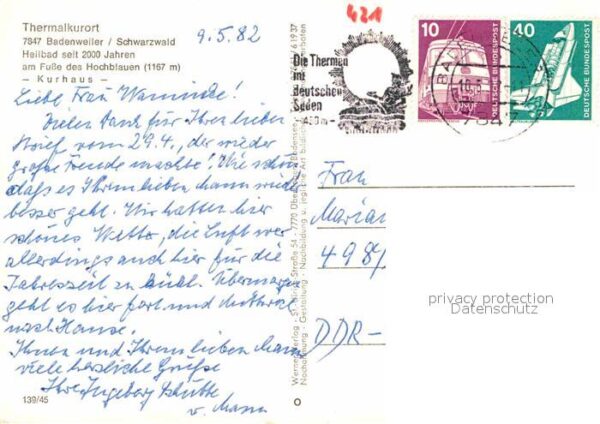 Thermalkurort
7847 Badenweiler / Schwarzwald
Heilbad seit 2000 Jahren
am Fuße des Hochblauen (1167 m)
— Kurhaus —
9.5.82
Liebe Frau
Vielen Dank für Ihren lieben
Brief vom 29.4., der wieder
große Freude machte! Wie schön
daß es Ihrem lieben Mann wieder
besser geht. Wir hatten hier
schönes Wetter, die Luft war
allerdings auch hier für die
Jahreszeit zu kühl. Übermorgen
geht es hier fort und
nach Hause.
Ihnen und Ihrem lieben Mann
viele herzliche Grüße
Ihre Ingeborg Schütte
u. Mann
139/45
421
Die Thermen
im
deutschen
Süden
10
DEUTSCHE BUNDESPOST
40
DEUTSCHE BUNDESPOST
7847
Frau
Marian
DDR-
privacy protection
Datenschutz